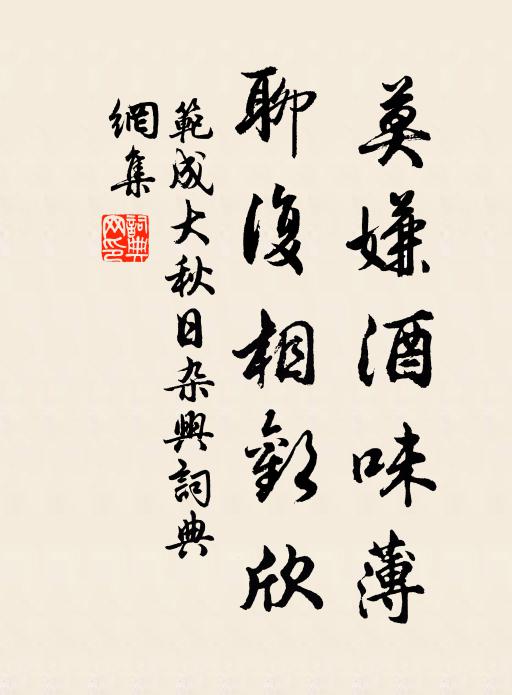 莫嫌酒味薄
聊復相勸欣
範成大秋日杂興詞典
網集
詞典
网印